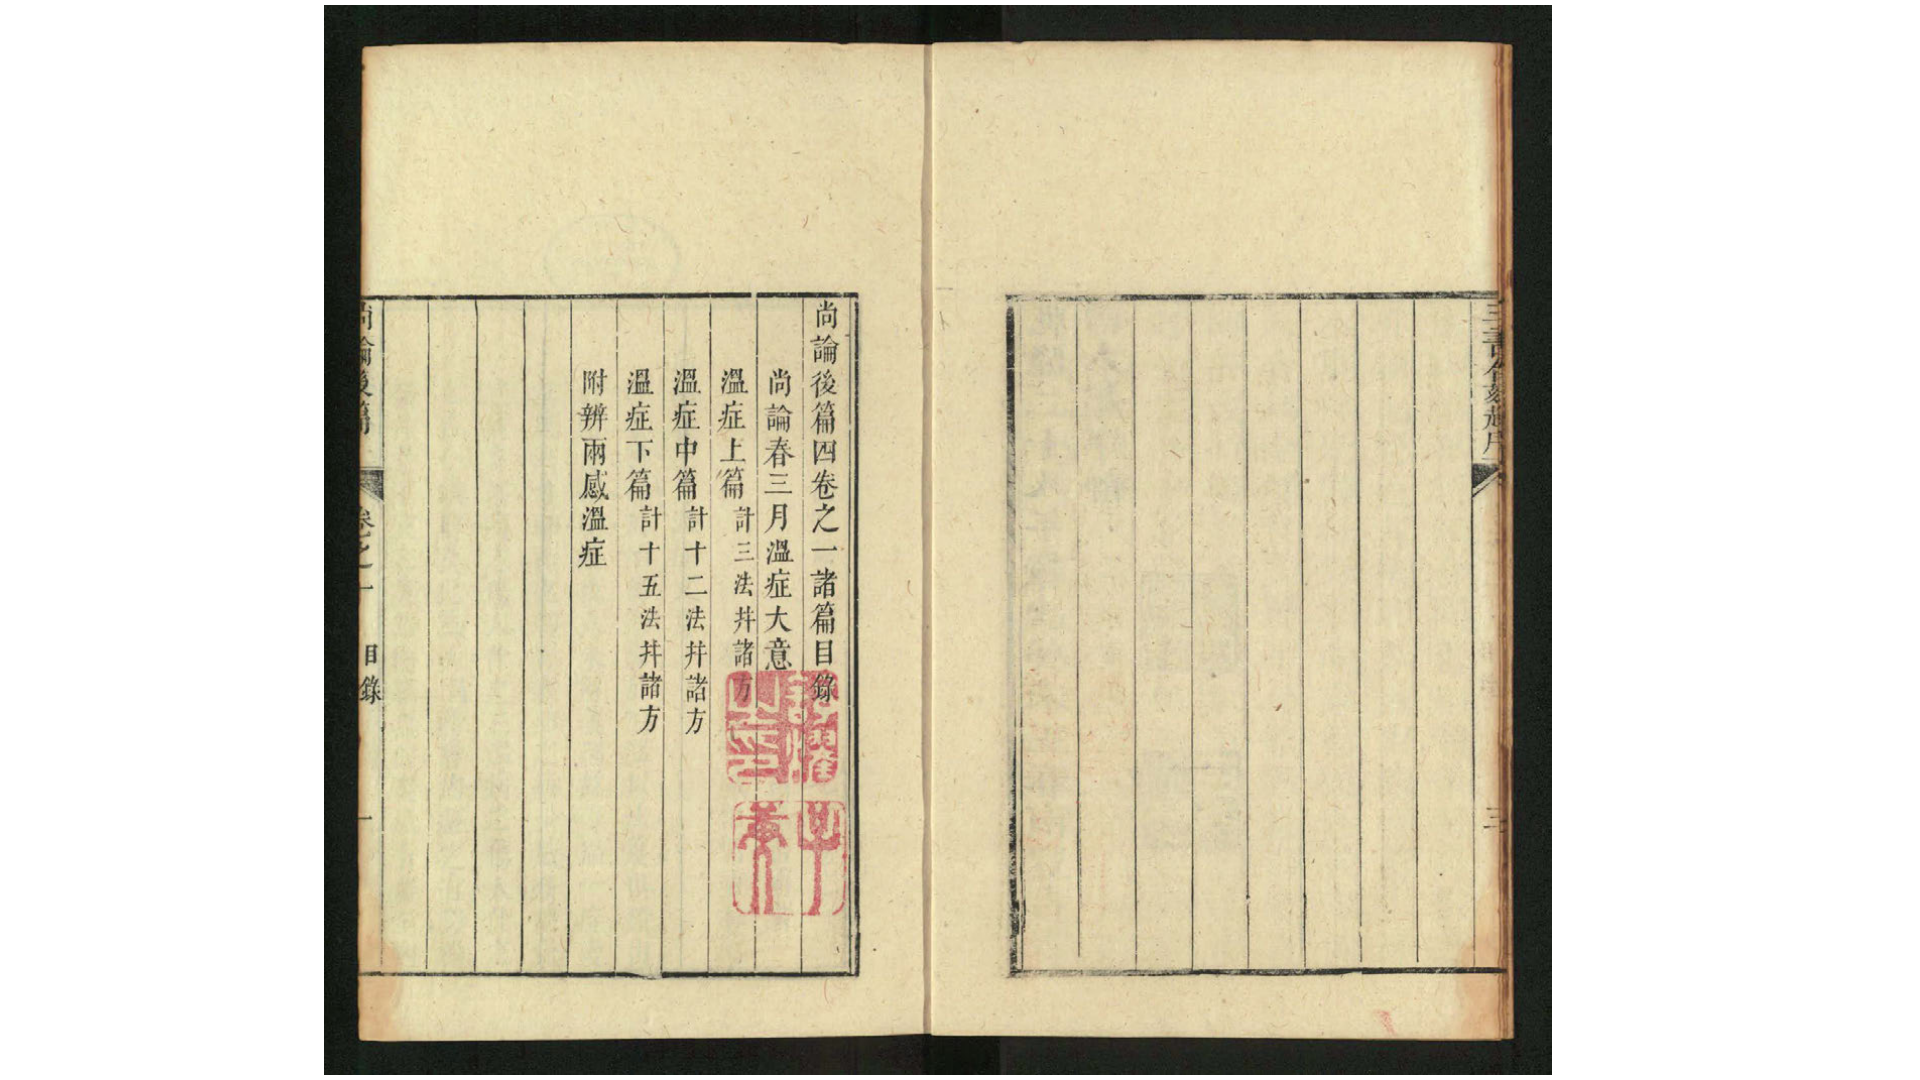 三書合刻趙序
三
尚論後篇四卷之一諸篇目錄
尚論春三月溫症大意
溫症上篇計三法幷諸方
溫症中篇計十二法幷諸方
溫症下篇計十五法幷諸方
附辨兩感溫症
尚論後篇
卷之一
目錄
一